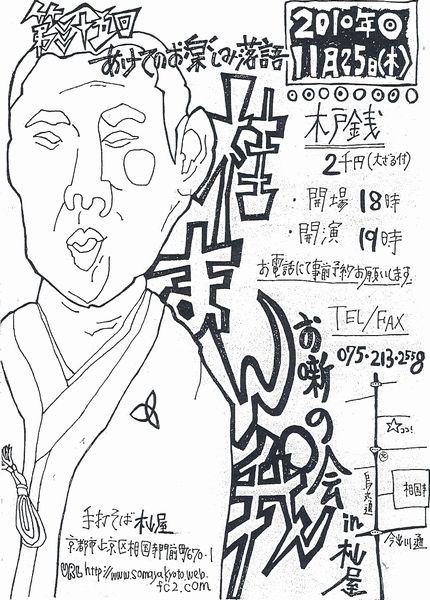 あけてのお楽しみ落語
2010年
11月25日(木)
木戸銭
2千円(大ざる付)
・開場 18時
・開演 19時
お電話にて事前予約お願いします。
TEL/FAX
075・213・2558
桂まん我
お噺の会 in 杣屋
☆ココ!
烏丸通
相国寺
今出川通
手打そば 杣屋
京都市上京区相国寺門前町670-1
URL http://www.somayakyoto.web.
fc2.com